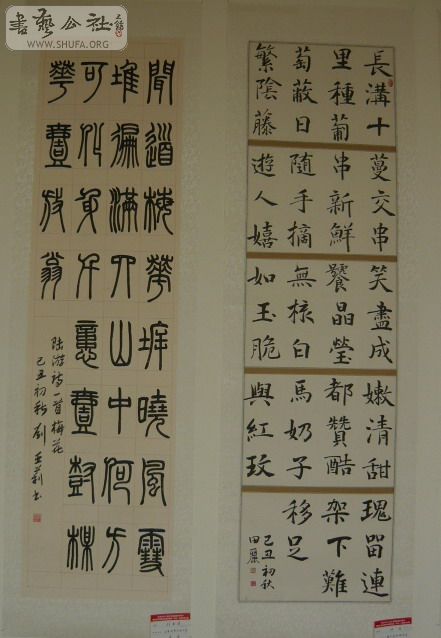 書藝公社
WWW.SHUFA.ORG
長溝十
里種葡
萄蔽日
繁陰藤
蔓交串
串新鮮
隨手摘
遊人嬉
笑盡成
饕晶瑩
無核白
如玉脆
嫩清甜
都贊酷
馬奶子
與紅玫
瑰留連
架下難
移足
己丑初秋
田麗
聞道梅華坼曉風雪
堆遍滿四山中何方
可化身千億壹樹楳
華壹放翁
陸游詩一首梅花
己丑初秋劉亞莉書